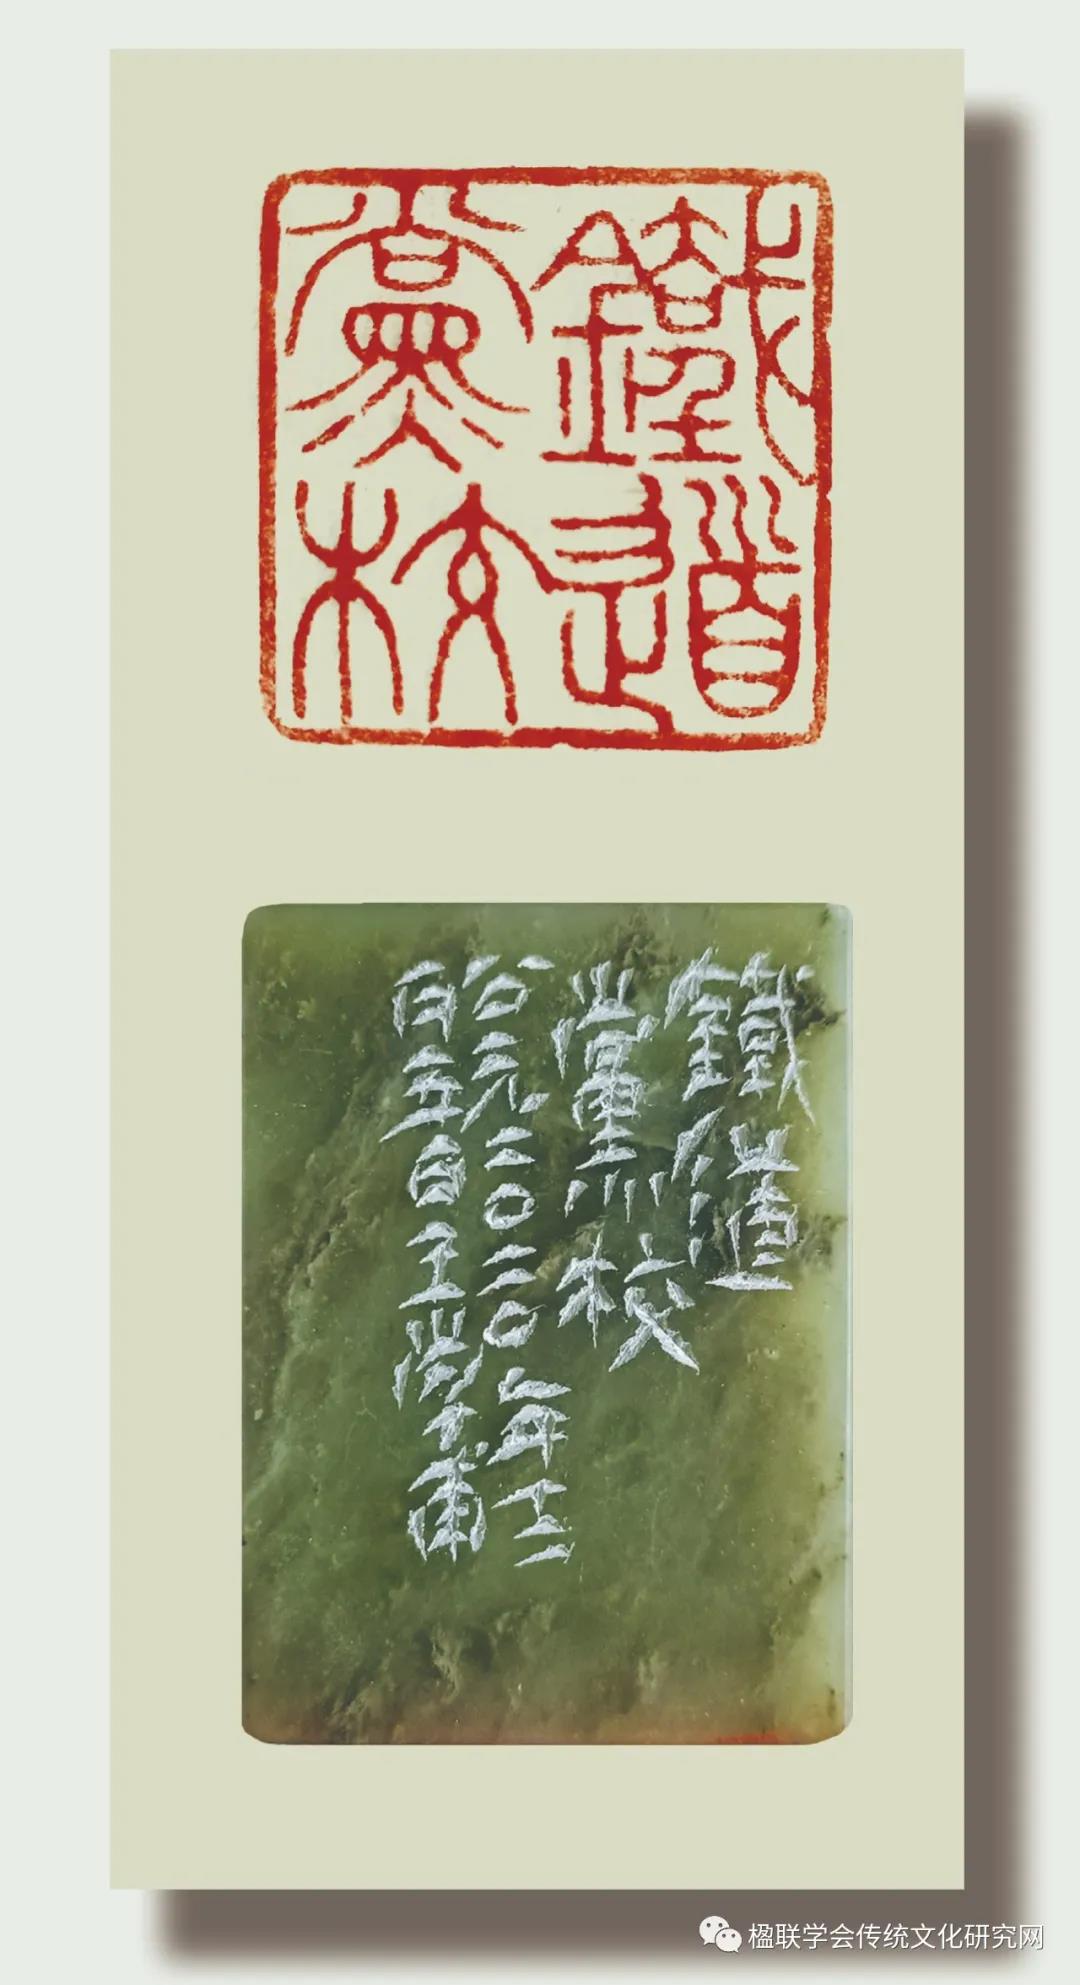 鐵道
黨校
鐵道
黨校
公元二〇二〇年十二
月五日王 甫
楹联学会传统文化研究网